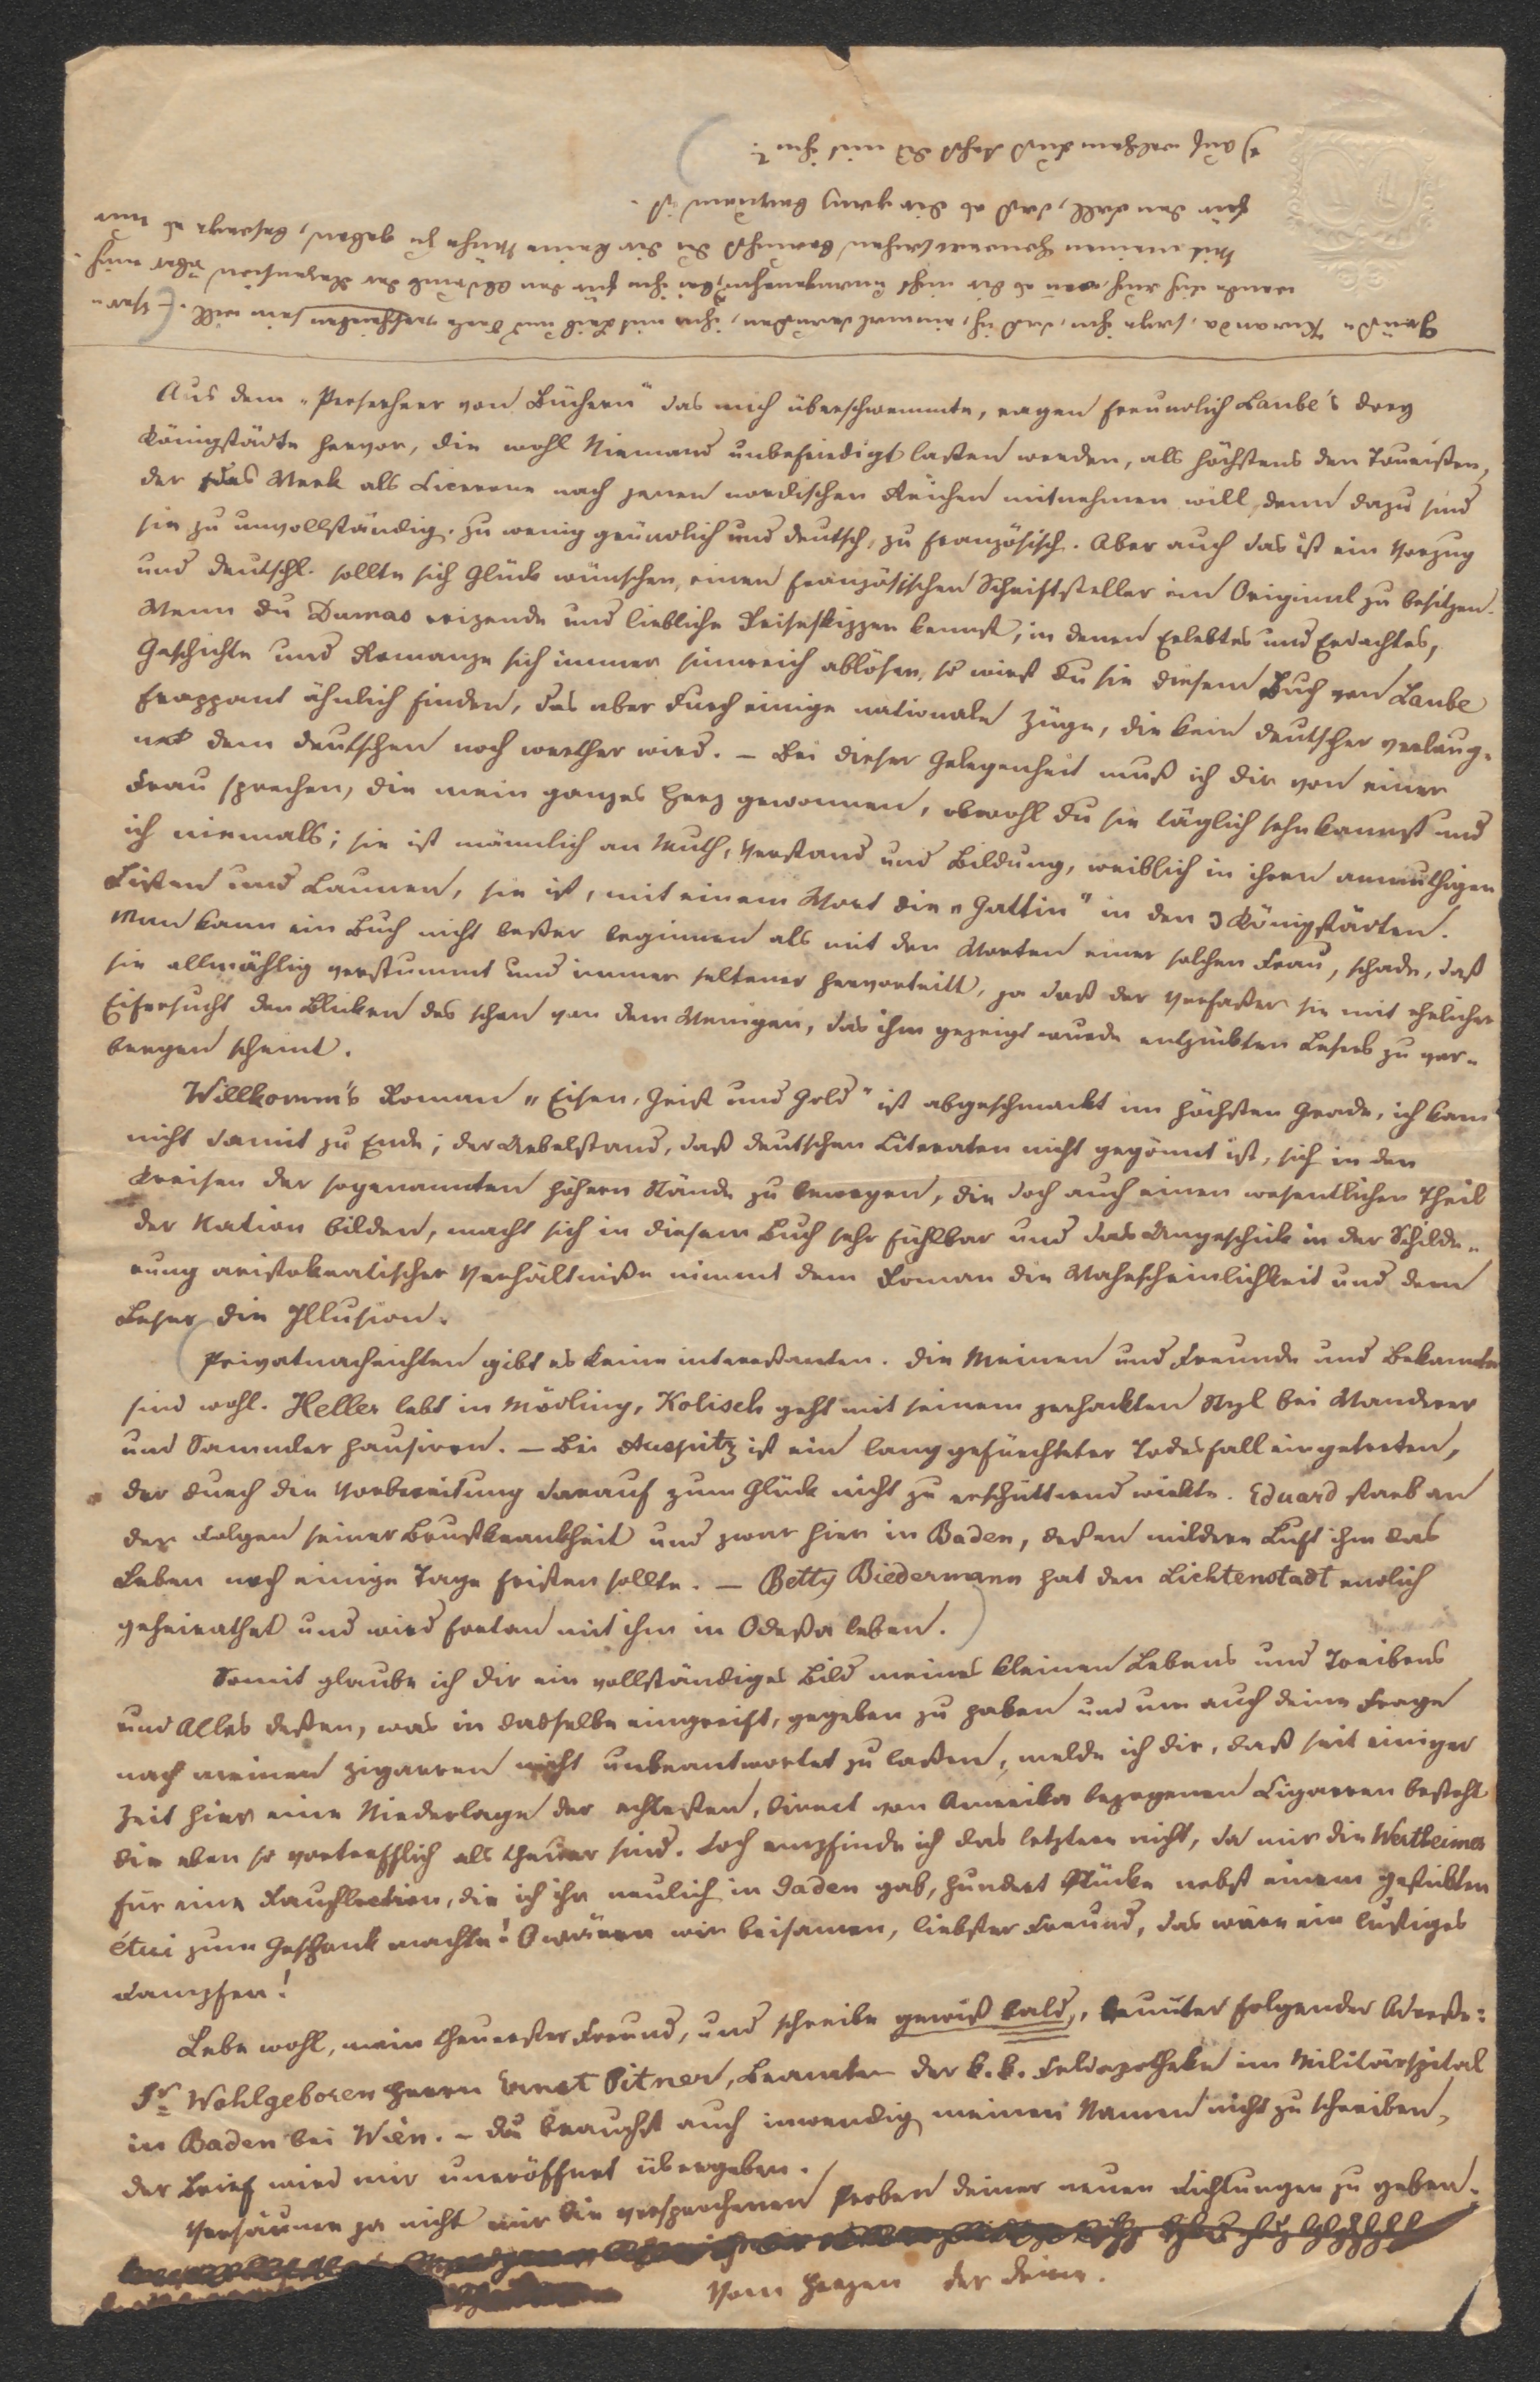 Grüße Kuranda, sage ihm, daß ich, einmal dort, ihm mit Leib und Seele verschrieben sein will. (Ihm
wende dich auch, wenn es dir nicht unangenehm, bei ihm für den Abdruck der Rezension
Mit meinem Honorar brauchst du dir keine Mühe zu geben, besorge es nur
für den Fall, daß es dir ganz bequem ist.
*) auf welchem Fuß stehst du mit ihm?
Aus dem „Perserheer von Büchern" das mich überschwemmte, ragen freundlich Laube's drey
Königstädte hervor, die wohl Niemand unbefriedigt laßen werden, als höchstens den Touristen,
der das Werk als Cicerone nach jenen nordischen Reichen mitnehmen will, denn dazu sind
sie zu unvollständig, zu wenig gründlich und deutsch, zu französisch. Aber auch das ist ein Vorzug
und Deutschl. sollte sich Glück wünschen, einen französischen Schriftsteller im Original zu besitzen.
Wenn du Dumas reizende und liebliche Reiseskizzen kennst, in denen Erlebtes und Erdachtes,
Geschichte und Romanze sich immer sinnreich ablösen, so wirst du sie diesem Buch von Laube
frappant ähnlich finden, das aber durch einige nationale Züge, die kein Deutscher verläug-
net dem Deutschen noch werther wird. – Bei dieser Gelegenheit muß ich dir von einer
Frau sprechen, die mein ganzes Herz gewonnen, obwohl du sie täglich sehn kannst und
ich niemals; sie ist männlich an Muth, Verstand und Bildung, weiblich in ihren anmuthigen
Listen und Launen, sie ist, mit einem Wort die „Gattin" in den 3 Königstädten.
Man kann ein Buch nicht beßer beginnen als mit den Worten einer solchen Frau, schade, daß
sie allmählig verstummt und immer seltener hervortritt, ja daß der Verfaßer sie mit ehelicher
Eifersucht den Blicken des schon von dem Wenigen, das ihm gezeigt wurde entzückten Lesers zu ver-
bergen scheint.
Willkomm's Roman „Eisen, Geist und Gold" ist abgeschmackt im höchsten Grade, ich kam
nicht damit zu Ende; der Uebelstand, daß deutschen Literaten nicht gegönnt ist, sich in den
Kreisen der sogenannten höhern Stände zu bewegen, die doch auch einen wesentlichen Theil
der Nation bilden, macht sich in diesem Buch sehr fühlbar und das Ungeschick in der Schilde-
rung aristokratischer Verhältniße nimmt dem Roman die Wahrscheinlichkeit und dem
Leser die Illusion.
(Privatnachrichten gibt es keine intereßanten. Die Meinen und Freunde und Bekannten
sind wohl. Heller lebt in Mödling, Kolisch geht mit seinem zerhackten Styl bei Wanderer
und Sammler hausiren. – Bei Auspitz ist ein lang gefürchteter Todesfall eingetreten,
der durch die Vorbereitung darauf zum Glück nicht zu erschütternd wirkte. Eduard starb an
den Folgen seiner Brustkrankheit und zwar hier in Baden, deßen mildere Luft ihm das
Leben noch einige Tage fristen sollte. – Betty Biedermann hat den Lichtenstadt endlich
geheirathet und wird fortan mit ihm in Odeßa leben.)
Somit glaube ich dir ein vollständiges Bild meines kleinen Lebens und Treibens
und Alles deßen, was in dasselbe eingreift, gegeben zu haben und um auch deine Frage
nach meinen Zigarren nicht unbeantwortet zu laßen, melde ich dir, daß seit einiger
Zeit hier eine Niederlage der echtesten, direct von Amerika bezogenen Cigarren besteht
die eben so vortrefflich als theuer sind. Doch empfinde ich das letztere nicht, da mir die Wertheimer
für eine Rauchlection, die ich ihr neulich in Baden gab, hundert Stücke nebst einem gestickten
étui zum Geschenk machte! O wären wir beisamen, liebster Freund, das wäre ein lustiges
Dampfen!
Lebe wohl, mein theuerster Freund, und schreibe gewiß bald, unter folgender Adreße:
Sr Wohlgeboren Herrn Ernst Pitner, Beamter der k.k. Feldapotheke im Militärspital
in Baden bei Wien. – du brauchst auch inwendig meinen Namen nicht zu schreiben,
der Brief wird mir uneröffnet übergeben.
Versäume ja nicht mir die versprochenen Proben deiner neuen Dichtungen zu geben.
Vom Herzen der deine.